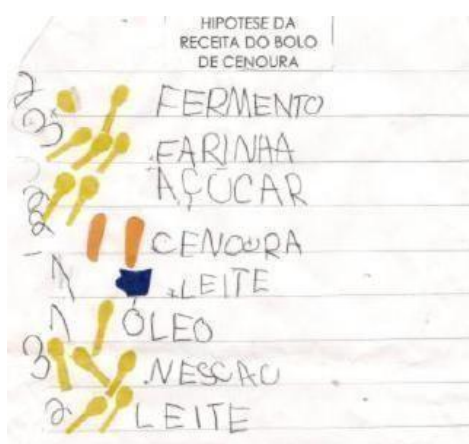 HIPÓTESE DA
RECEITA DO BOLO
DE CENOURA
2 FERMENTO
3 FARINHA
2 AÇÚCAR
2 CENOURA
1 LEITE
1 ÓLEO
3 NESCAO
2 LEITE